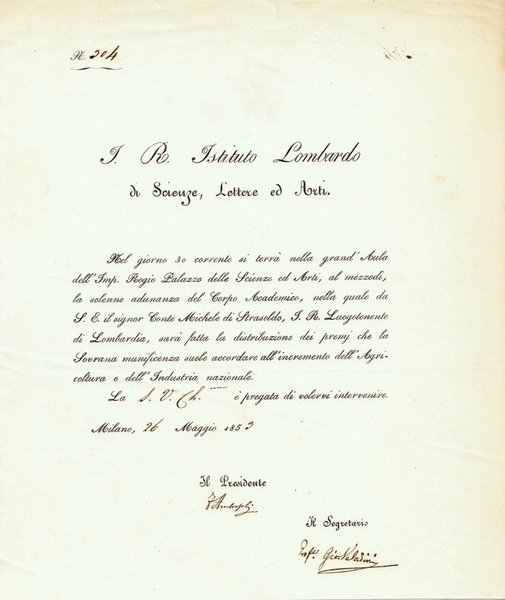 N. 304
I. R. Istituto Lombardo
di Scienze, Lettere ed Arti.
Nel giorno 30 corrente si terrà nella grand'Aula
dell'Imp. Regio Palazzo delle Scienze ed Arti, al mezzodì,
la solenne adunanza del Corpo Academico, nella quale da
S. E. il signor Conte Michele di Strasoldo, I. R. Luogotenente
di Lombardia, sarà fatta la distribuzione dei premj che la
Sovrana munificenza suole accordare all'incremento dell'Agri-
coltura e dell'Industria nazionale.
La S. V. Ch. è pregata di volervi intervenire.
Milano, 26 Maggio 1853
Il Presidente
Il Segretario